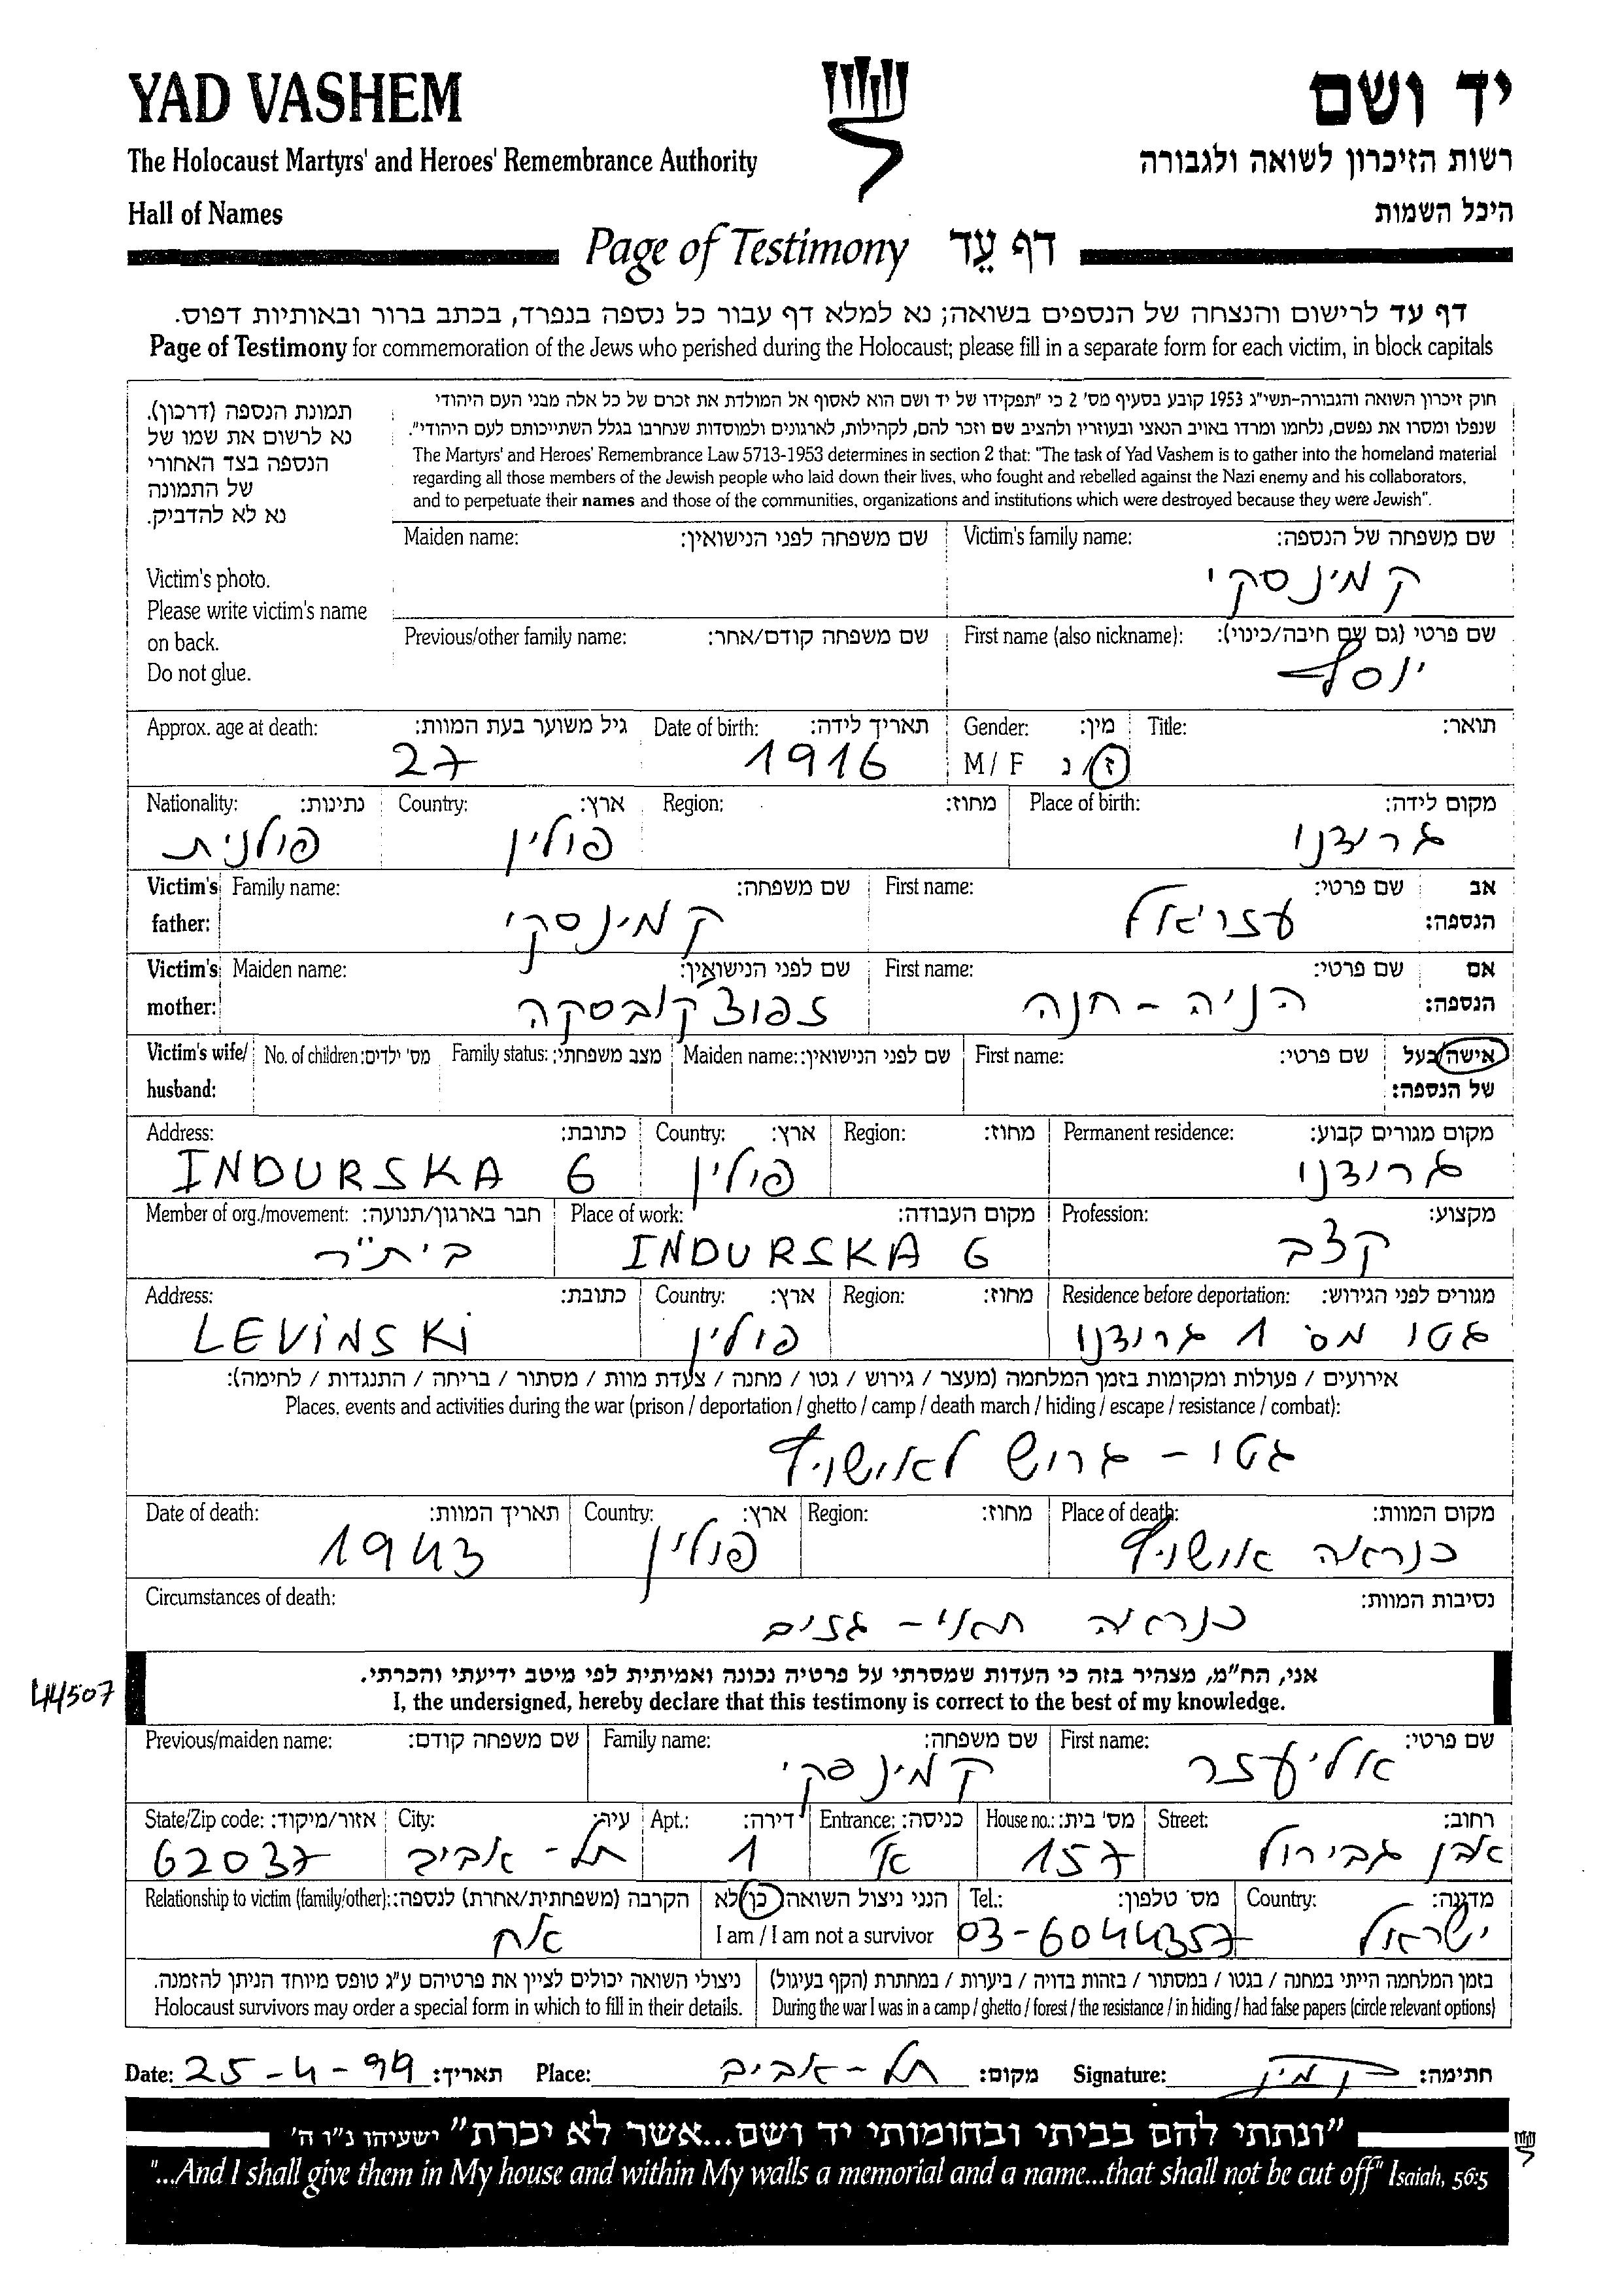 YAD VASHEM
יד ושם
The Holocaust Martyrs' and Heroes' Remembrance Authority
רשות הזיכרון לשואה ולגבורה
Hall of Names
היכל השמות
Page of Testimony דף עֵד
דף עד לרישום והנצחה של הנספים בשואה; נא למלא דף עבור כל נספה בנפרד, בכתב ברור ובאותיות דפוס.
Page of Testimony for commemoration of the Jews who perished during the Holocaust; please fill in a separate form for each victim, in block capitals
תמונת הנספה (דרכון).
נא לרשום את שמו של
הנספה בצד האחורי
של התמונה
נא לא להדביק.
Victim's photo.
Please write victim's name
on back.
Do not glue.
חוק זיכרון השואה והגבורה-תשי"ג 1953 קובע בסעיף מס' 2 כי "תפקידו של יד ושם הוא לאסוף אל המולדת את זכרם של כל אלה מבני העם היהודי
שנפלו ומסרו את נפשם, נלחמו ומרדו באויב הנאצי ובעוזריו ולהציב שם וזכר להם, לקהילות, לארגונים ולמוסדות שנחרבו בגלל השתייכותם לעם היהודי".
The Martyrs' and Heroes' Remembrance Law 5713-1953 determines in section 2 that: "The task of Yad Vashem is to gather into the homeland material
regarding all those members of the Jewish people who laid down their lives, who fought and rebelled against the Nazi enemy and his collaborators,
and to perpetuate their names and those of the communities, organizations and institutions which were destroyed because they were Jewish".
Maiden name: שם משפחה לפני הנישואין: Victim's family name: שם משפחה של הנספה:
קמינסקי
Previous/other family name: שם משפחה קודם/אחר: First name (also nickname): שם פרטי (גם שם חיבה/כינוי):
יוסף
Approx. age at death: גיל משוער בעת המוות: Date of birth: תאריך לידה: Gender: מין: Title: תואר:
27 1916 M / F ז/נ
Nationality: נתינות: Country: ארץ: Region: מחוז: Place of birth: מקום לידה:
פולנית פולין גרודנו
Victim's Family name: שם משפחה: First name: שם פרטי: אב
father: קמינסקי עזריאל הנספה:
Victim's Maiden name: שם לפני הנישואין: First name: שם פרטי: אם
mother: זפוצקובסקה הניה - חנה הנספה:
Victim's wife/ No. of children: מס' ילדים: Family status: מצב משפחתי: Maiden name: שם לפני הנישואין: First name: שם פרטי: אישה/בעל
husband: של הנספה:
Address: כתובת: Country: ארץ: Region: מחוז: Permanent residence: מקום מגורים קבוע:
INDURSKA 6 פולין גרודנו
Member of org./movement: חבר בארגון/תנועה: Place of work: מקום העבודה: Profession: מקצוע:
בית"ר INDURSKA 6 קצב
Address: כתובת: Country: ארץ: Region: מחוז: Residence before deportation: מגורים לפני הגירוש:
LEVINSKi פולין גטו מס 1 גרודנו
אירועים / פעולות ומקומות בזמן המלחמה (מעצר / גירוש / גטו / מחנה / צעדת מוות / מסתור / בריחה / התנגדות / לחימה):
Places, events and activities during the war (prison / deportation / ghetto / camp / death march / hiding / escape / resistance / combat):
גטו - גרוש לאושויץ
Date of death: תאריך המוות: Country: ארץ: Region: מחוז: Place of death: מקום המוות:
1943 פולין כנראה אושויץ
Circumstances of death: נסיבות המוות:
כנראה תאי - גזים
אני, הח"מ, מצהיר בזה כי העדות שמסרתי על פרטיה נכונה ואמיתית לפי מיטב ידיעתי והכרתי.
44507
I, the undersigned, hereby declare that this testimony is correct to the best of my knowledge.
Previous/maiden name: שם משפחה קודם: Family name: שם משפחה: First name: שם פרטי:
קמינסקי אליעזר
State/Zip code: אזור/מיקוד: City: עיר: Apt.: דירה: Entrance: כניסה: House no.: מס' בית: Street: רחוב:
62037 תל - אביב 1 א' 157 אבן גבירול
Relationship to victim (family/other): הקרבה (משפחתית/אחרת) לנספה: הנני ניצול השואה: כן/לא Tel.: מס' טלפון: Country: מדינה:
אח I am / I am not a survivor 03-6044357 ישראל
ניצולי השואה יכולים לציין את פרטיהם ע"ג טופס מיוחד הניתן להזמנה. בזמן המלחמה הייתי במחנה / בגטו / במסתור / בזהות בדויה / ביערות / במחתרת (הקף בעיגול)
Holocaust survivors may order a special form in which to fill in their details. During the war I was in a camp / ghetto / forest / the resistance / in hiding / had false papers (circle relevant options)
Date: 25-4-99 תאריך: Place: תל - אביב מקום: Signature: חתימה:
"ונתתי להם בביתי ובחומותי יד ושם...אשר לא יכרת" ישעיהו נ"ו ה'
"...And I shall give them in My house and within My walls a memorial and a name...that shall not be cut off" Isaiah, 56:5